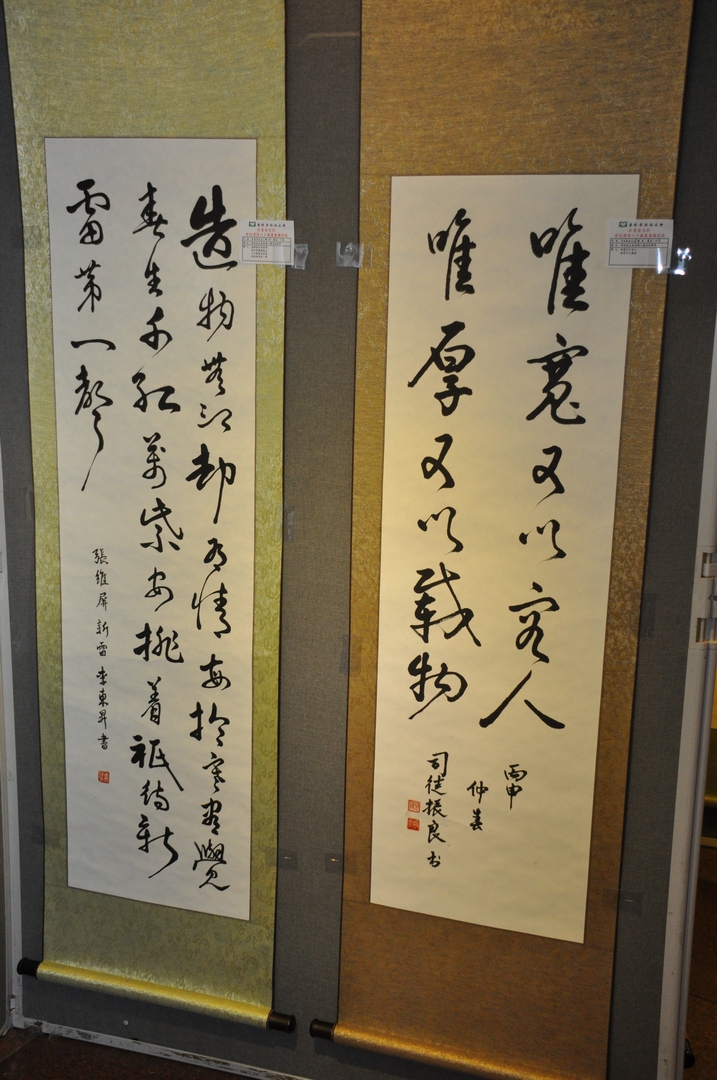 唯寬可以容人
唯厚可以載物
丙申
仲春
司徒振良书
造物無言却有情每於寒盡覺
春生千紅萬紫安排着祇待新
雷第一聲
張維屏新雷李東昇書